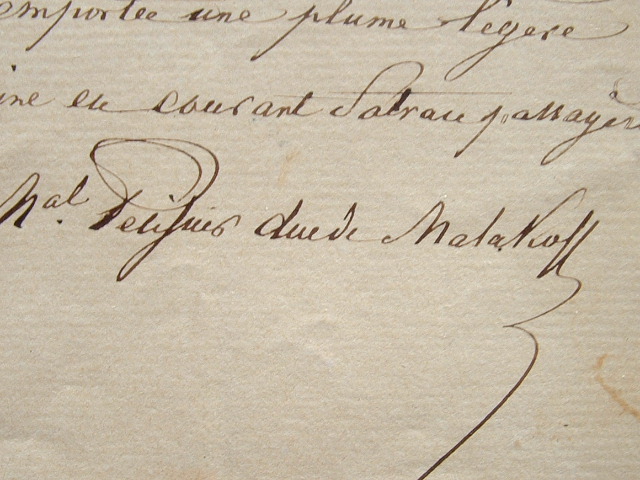 emportée une plume légère
ine en courant sa trace passagère
Mal. Pelissier duc de Malakoff